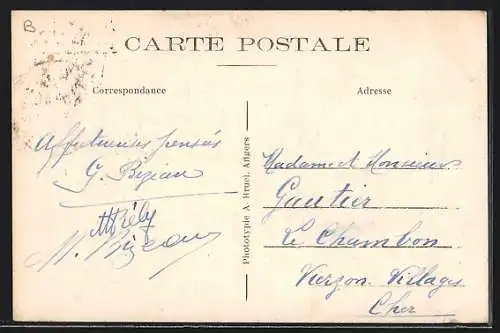 B
CARTE POSTALE
Correspondance
Adresse
Affectueuses pensées
G. Bizeau
M. Bizeau
Phototypie A. Bruel, Angers
Madame et Monsieur
Gautier
Le Chambon
Vierzon-Villages
Cher